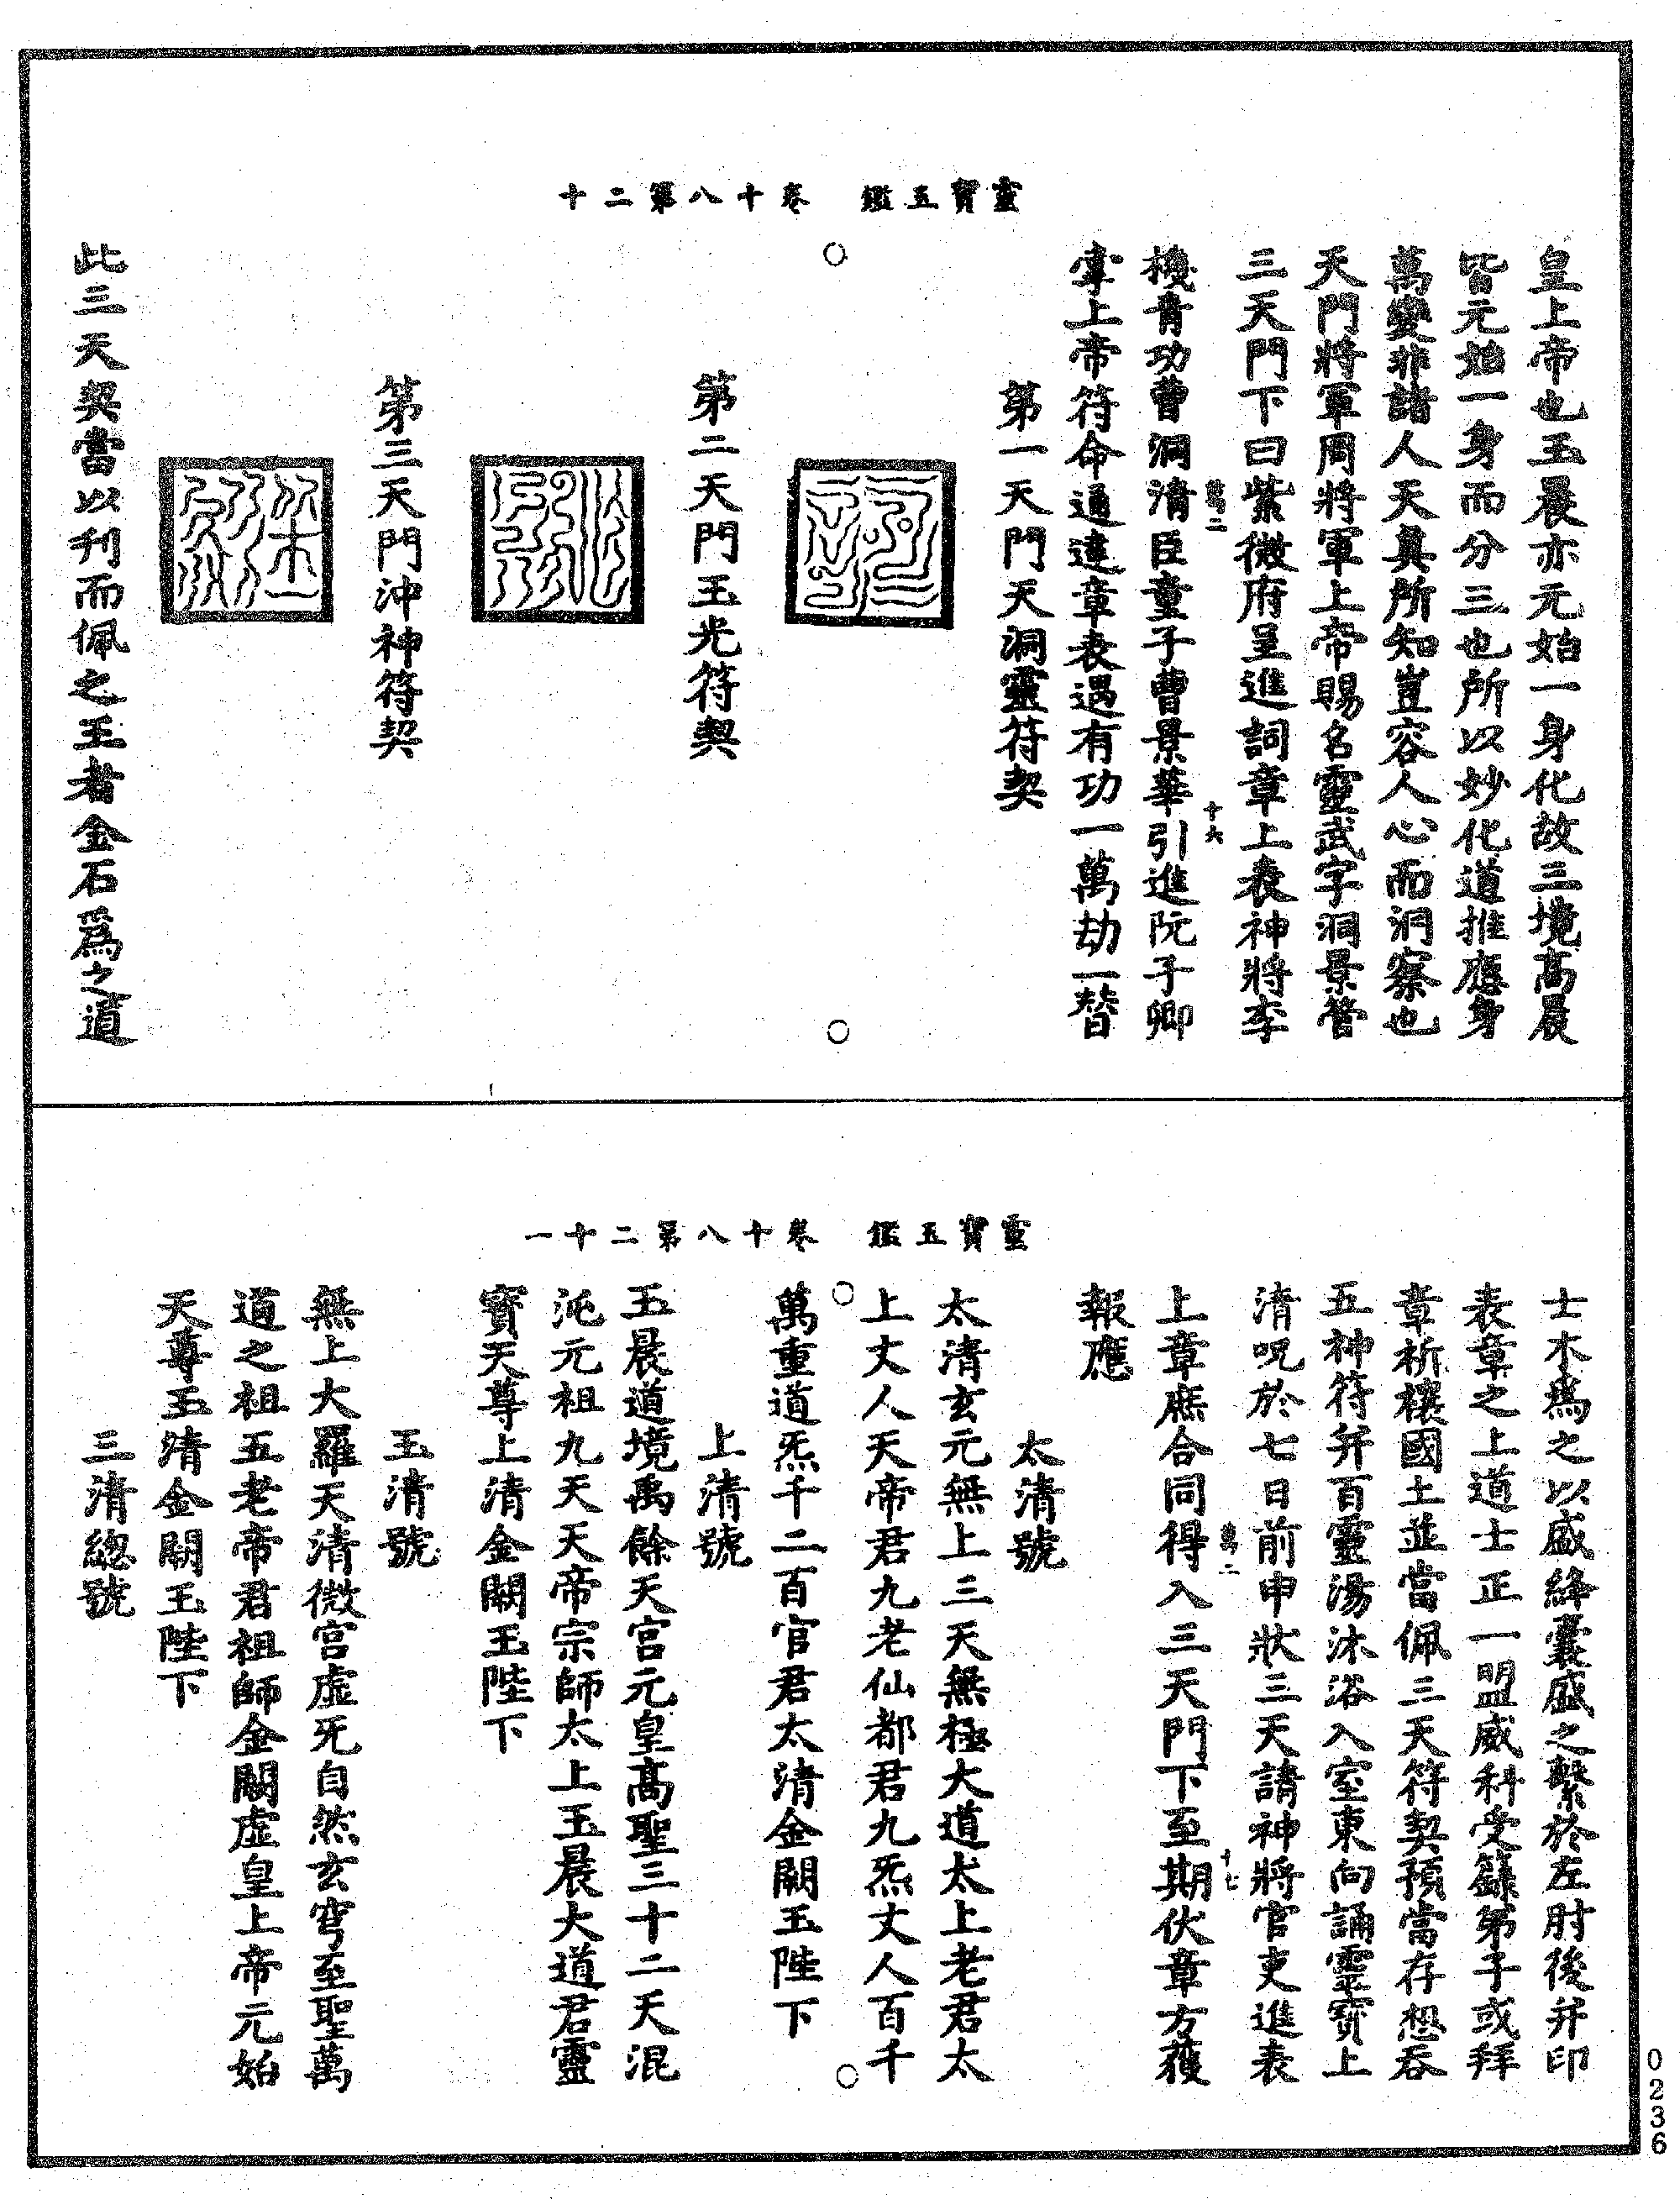 靈寶玉鑑 卷十八第二十
皇上帝也玉晨亦元始一身化故三境高晨
皆元始一身而分三也所以妙化道推應身
萬變非諸人天真所知豈容人心而洞察也
天門將軍周將軍上帝賜名靈武字洞景管
三天門下曰紫微府呈進詞章上表神將李
十六
機青功曹洞清臣童子曹景華引進阮子卿
掌上帝符命通達章表遇有功一萬劫一替
第一天門天洞靈符契
第二天門玉光符契
第三天門沖神符契
此三天契當以刊而佩之王者金石爲之道
靈寶玉鑑 卷十八第二十一
士木爲之以盛絳囊盛之繫於左肘後并印
表章之上道士正一盟威科受籙弟子或拜
章祈禳國土並當佩三天符契預當存想吞
五神符并百靈湯沐浴入室東向誦靈寶上
清呪於七日前申狀三天請神將官吏進表
十七
上章庶合同得入三天門下至期伏章方獲
報應
太清號
太清玄元無上三天無極大道太上老君太
上丈人天帝君九老仙都君九炁丈人百千
萬重道炁千二百官君太清金闕玉陛下
上清號
玉晨道境禹餘天宮元皇高聖三十二天混
沌元祖九天天帝宗師太上玉晨大道君靈
寶天尊上清金闕玉陛下
玉清號
無上大羅天清微宮虛无自然玄穹至聖萬
道之祖五老帝君祖師金闕虛皇上帝元始
天尊玉清金闕玉陛下
三清總號
0236